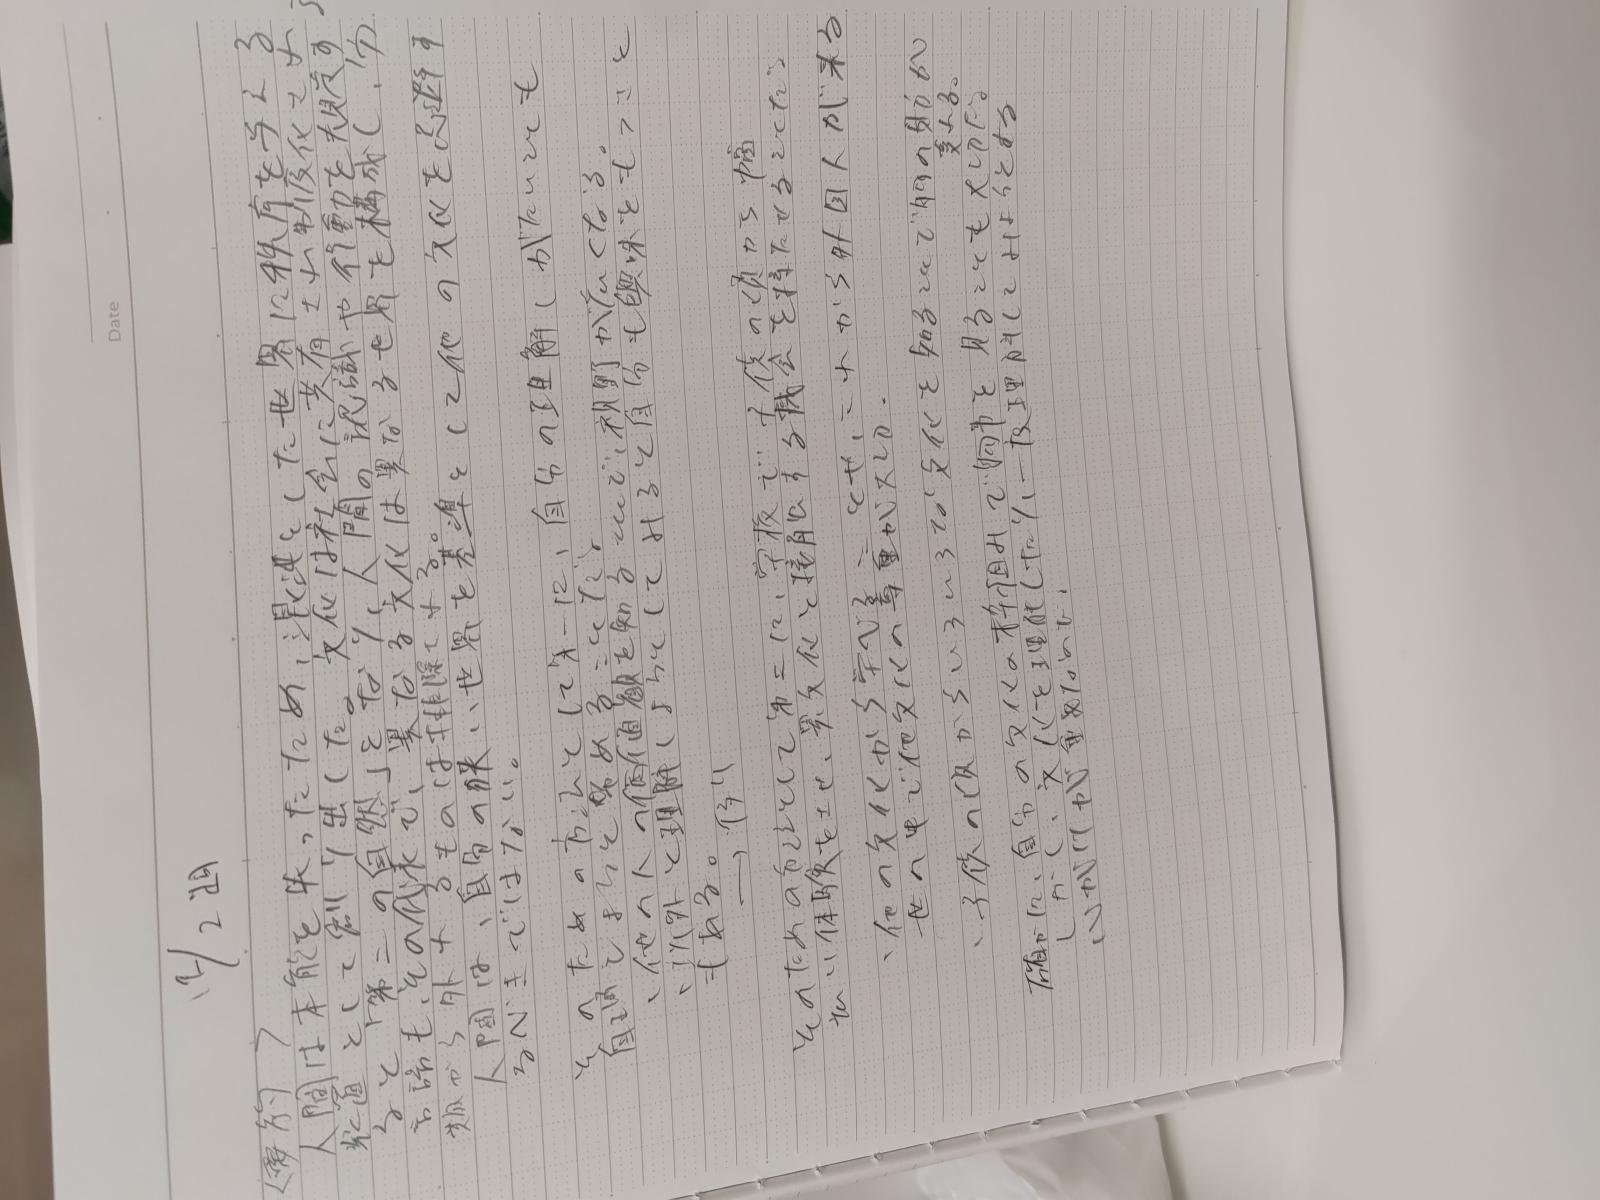 Date
12/2 週
〈要約〉
人間は本能を失ったため、混沌とした世界に秩序を与える
装置として創り出した。文化は社会に共有され制度化され
ると「第二の自然」となり、人間の認識や行動を触発す
言語も、その代表で、異なる文化は異なる世界を構成し、分
類から外れるものは排除される。
人間は、自分の世界を基準として他の文化を処理す
るべきではない。
そのための方法として第一に、自分の理解しがたいことも
自分とちがうと認めることだ。
・他の人の価値観を知ることで、視野が広くなる。
・以外と理解しようとしてみると自分も興味をもつこと
もある。
→ 例り
そのための方法として第二に、学校で子供の頃から幅
広い体験をさせ、異文化と接触する機会を持たせることだ。
・他の文化から学べることや、これから外国人が来る
世の中で他文化の尊重が大切。
・子供の頃からいろいろな文化を知ることで物の見方が
変わる。
確かに、自分の文化の枠組みで物事を見ることも大切だ。
しかし、文化を理解したり、一度理解してみようとする